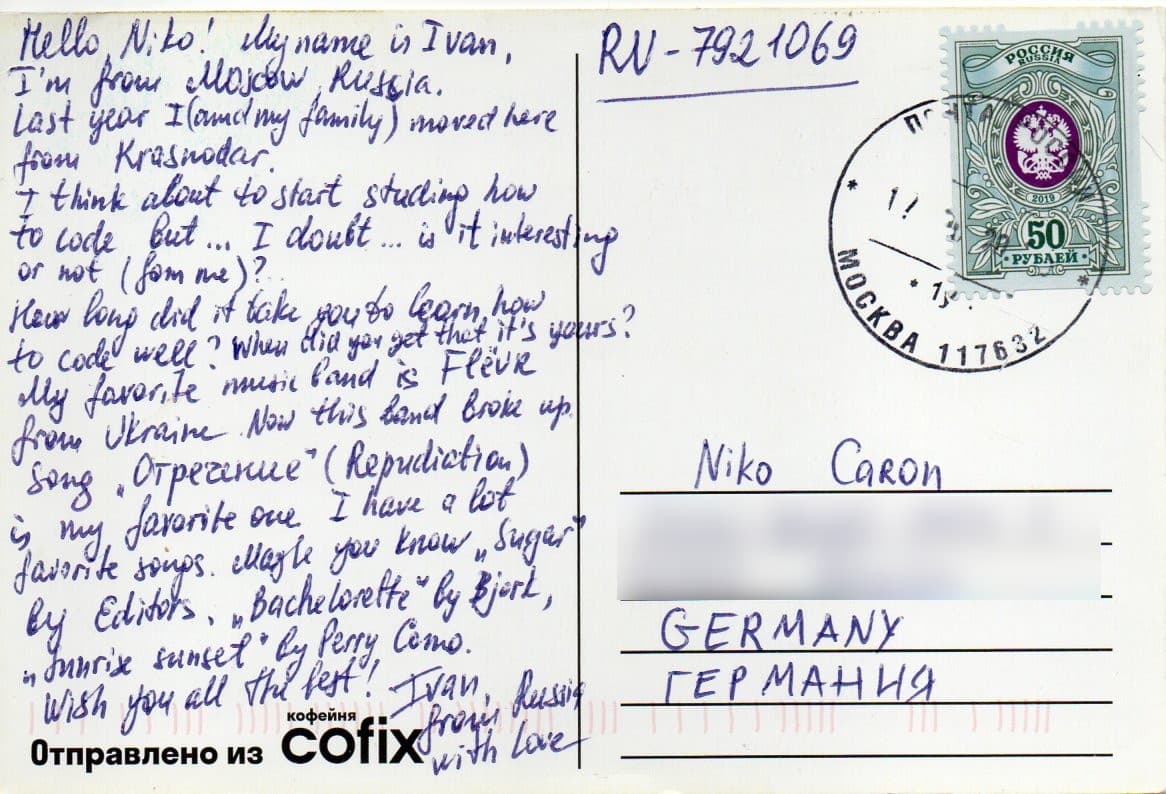 Hello, Niko! My name is Ivan,
I'm from Moscow, Russia.
Last year I (and my family) moved here
from Krasnodar.
I think about to start studing how
to code but... I doubt... is it interesting
or not (fom me)?
How long did it take you to learn how
to code well? When did you get that it's yours?
My favorite music band is Flёur
from Ukraine. Now this band broke up.
Song „Отречение" (Repudiation)
is my favorite one. I have a lot
favorite songs. Maybe you know „Sugar"
by Editors, „Bachelorette" by Bjork,
„Sunrise sunset" by Perry Como.
Wish you all the best! Ivan,
from Russia
with Love
Отправлено из
кофейня
cofix
RU-7921069
РОССИЯ
RUSSIA
2019
50
РУБЛЕЙ
МОСКВА 117632
Niko Caron
GERMANY
ГЕРМАНИЯ